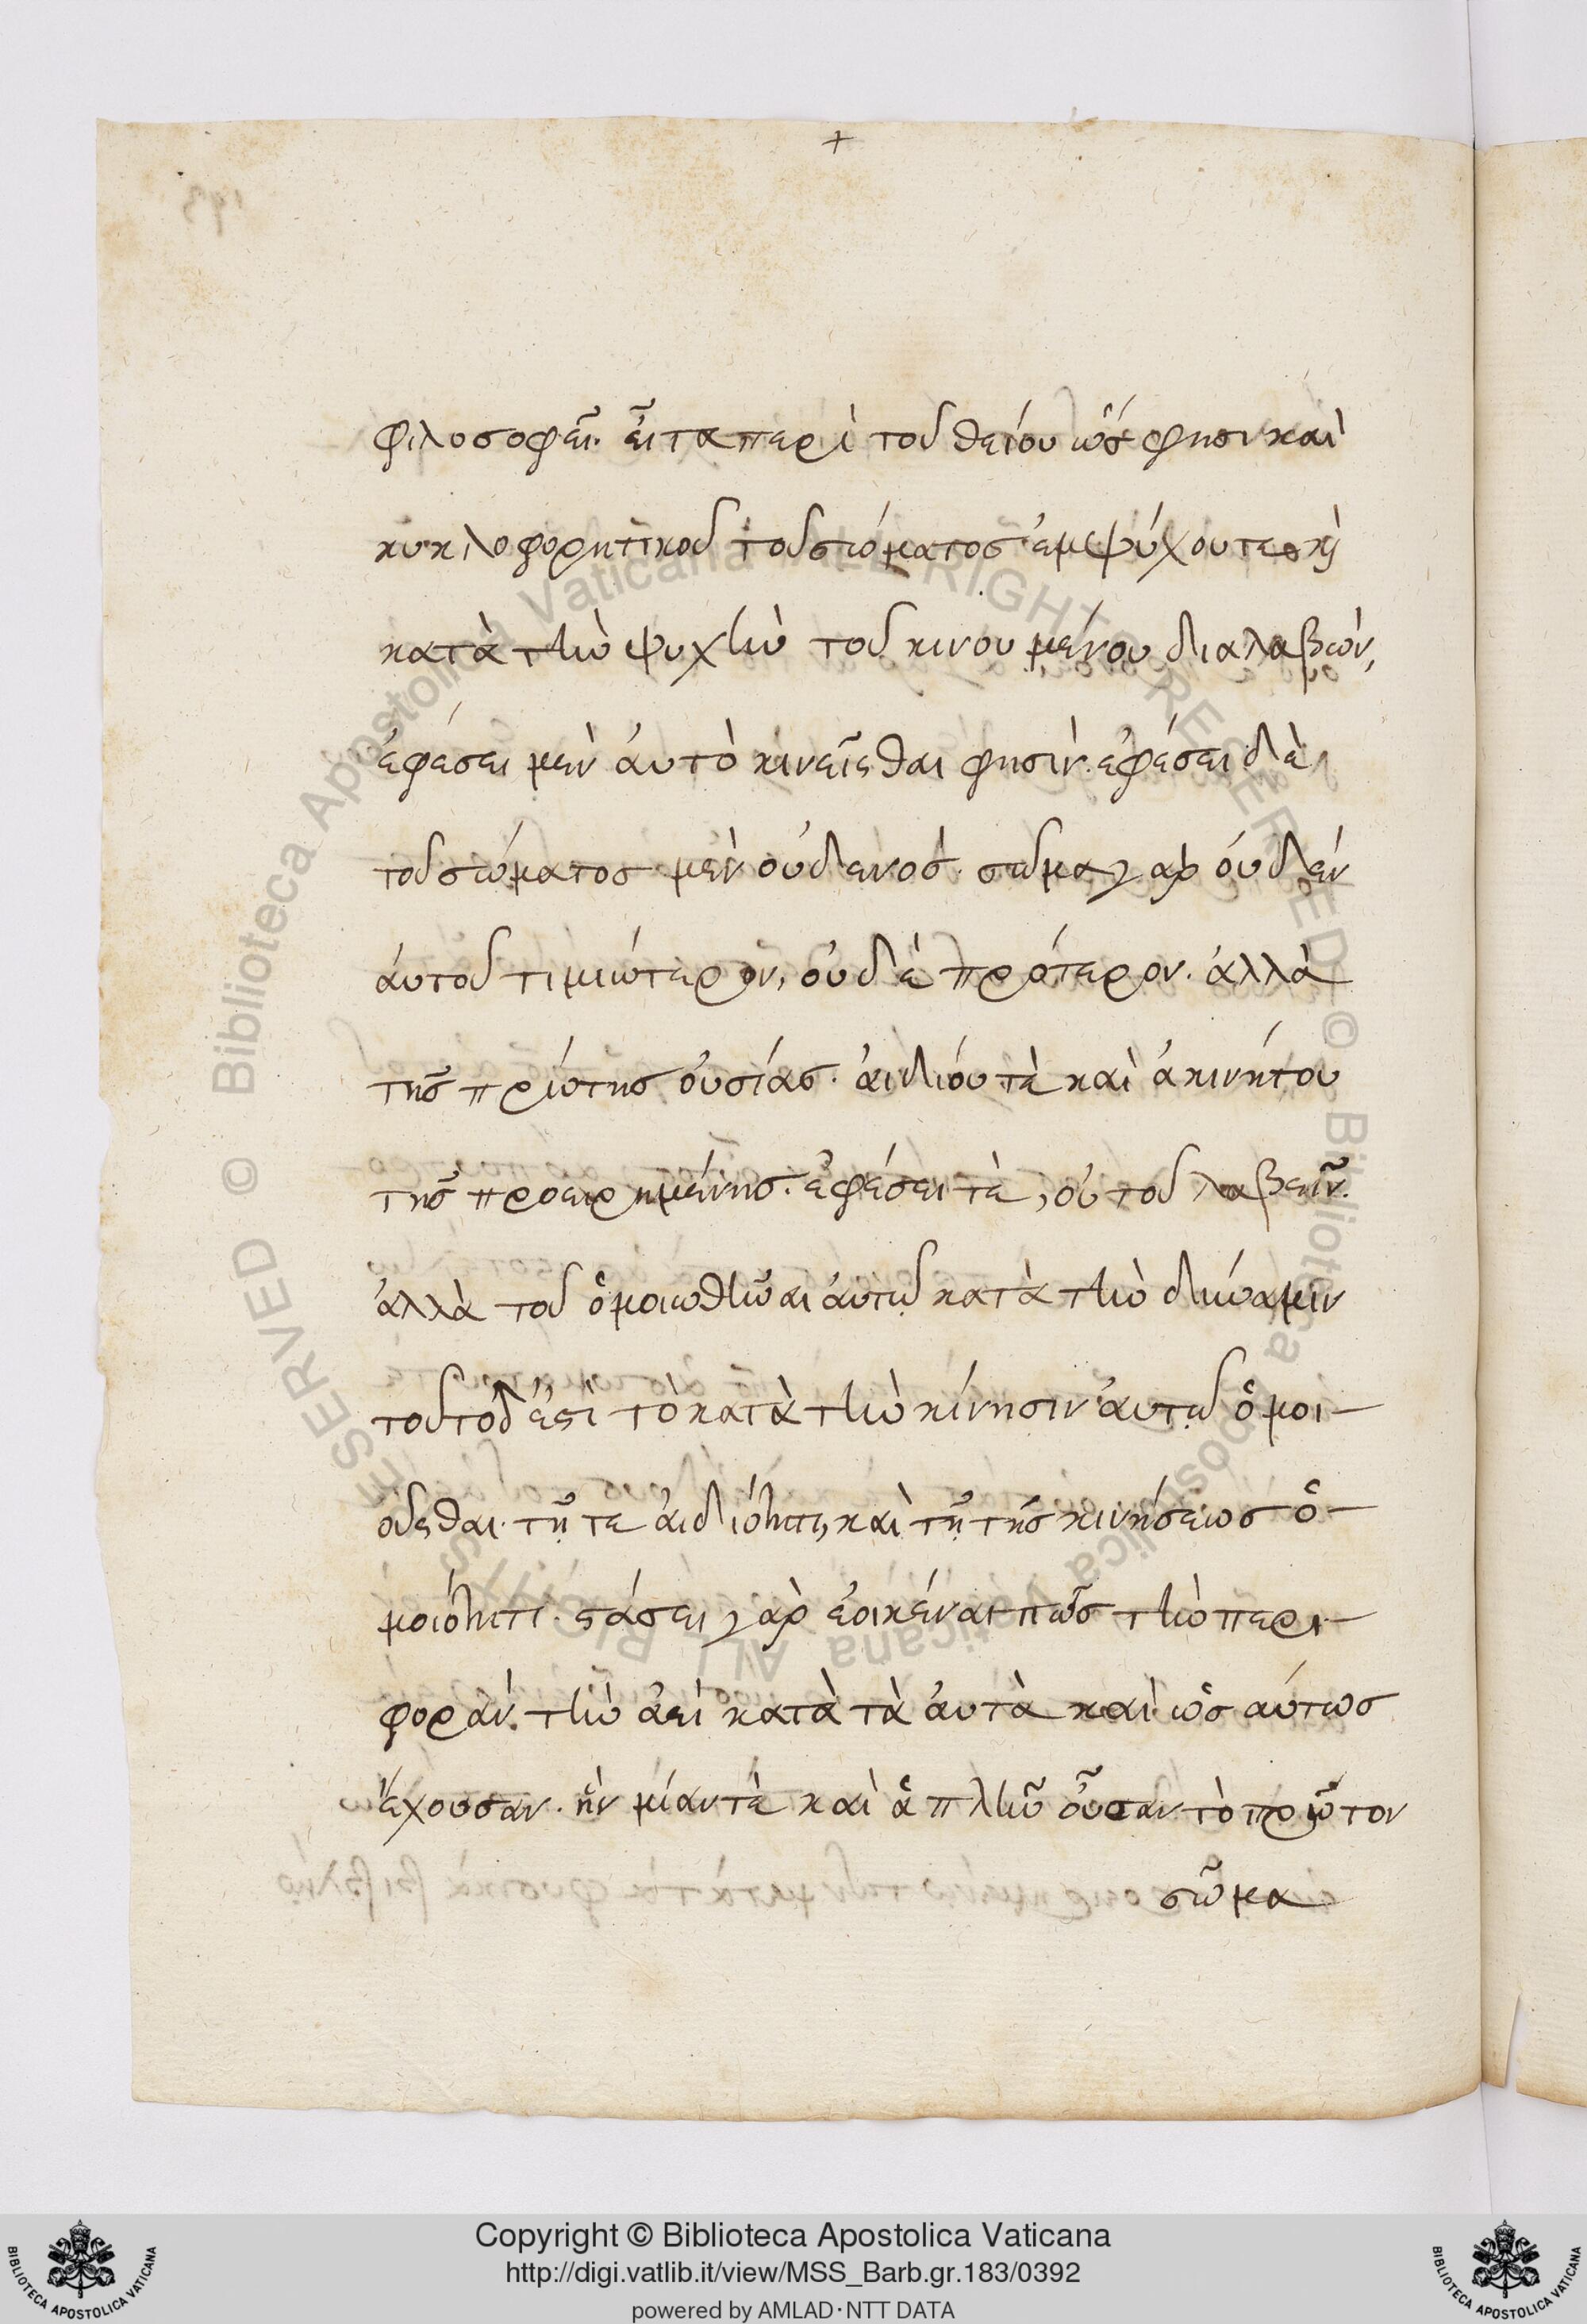 +
φιλοσοφεῖ. εἶτα περὶ τοῦ θείου ὥς φησι καὶ
κυκλοφορητικοῦ τοῦ σώματος ἐμψύχου τε κỳ
κατὰ τὴν ψυχὴν τοῦ κινουμένου διαλαβὼν,
ἐφέσει μὲν ἀυτὸ κινεῖσθαι φησὶν. ἐφέσει δὲ
τοῦ σώματος μὲν οὐδενὸς. σῶμα γὰρ ὀυδὲν
ἀυτοῦ τιμιώτερον, οὐδὲ πρότερον. ἀλλὰ
τῆς πρώτης οὐσίας. ἀιδίου τὲ καὶ ἀκινήτου
τῆς προειρημένης. ἐφέσει τὲ, οὐ τοῦ λαβεῖν.
ἀλλὰ τοῦ ὁμοιωθῆναι ἀυτῷ κατὰ τὴν δύναμιν
τοῦτο δ' ἐστὶ τὸ κατὰ τὴν κίνησιν ἀυτῷ ὁμοι-
οῦσθαι. τῇ τε ἀιδιότητι, καὶ τῇ τῆς κινήσεως ὁ-
μοιότητι. στάσει γὰρ ἐοικέναι πῶς τὴν περι-
φορὰν. τὴν ἀεὶ κατὰ τὰ ἀυτὰ καὶ ὡσαύτως
ἔχουσαν. ἣν μίαν τὲ καὶ ἁπλῆν οὖσαν τὸ πρῶτον
σῶμα
Copyright © Biblioteca Apostolica Vaticana
http://digi.vatlib.it/view/MSS_Barb.gr.183/0392
powered by AMLAD·NTT DATA
BIBLIOTECA APOSTOLICA VATICANA
BIBLIOTECA APOSTOLICA VATICANA